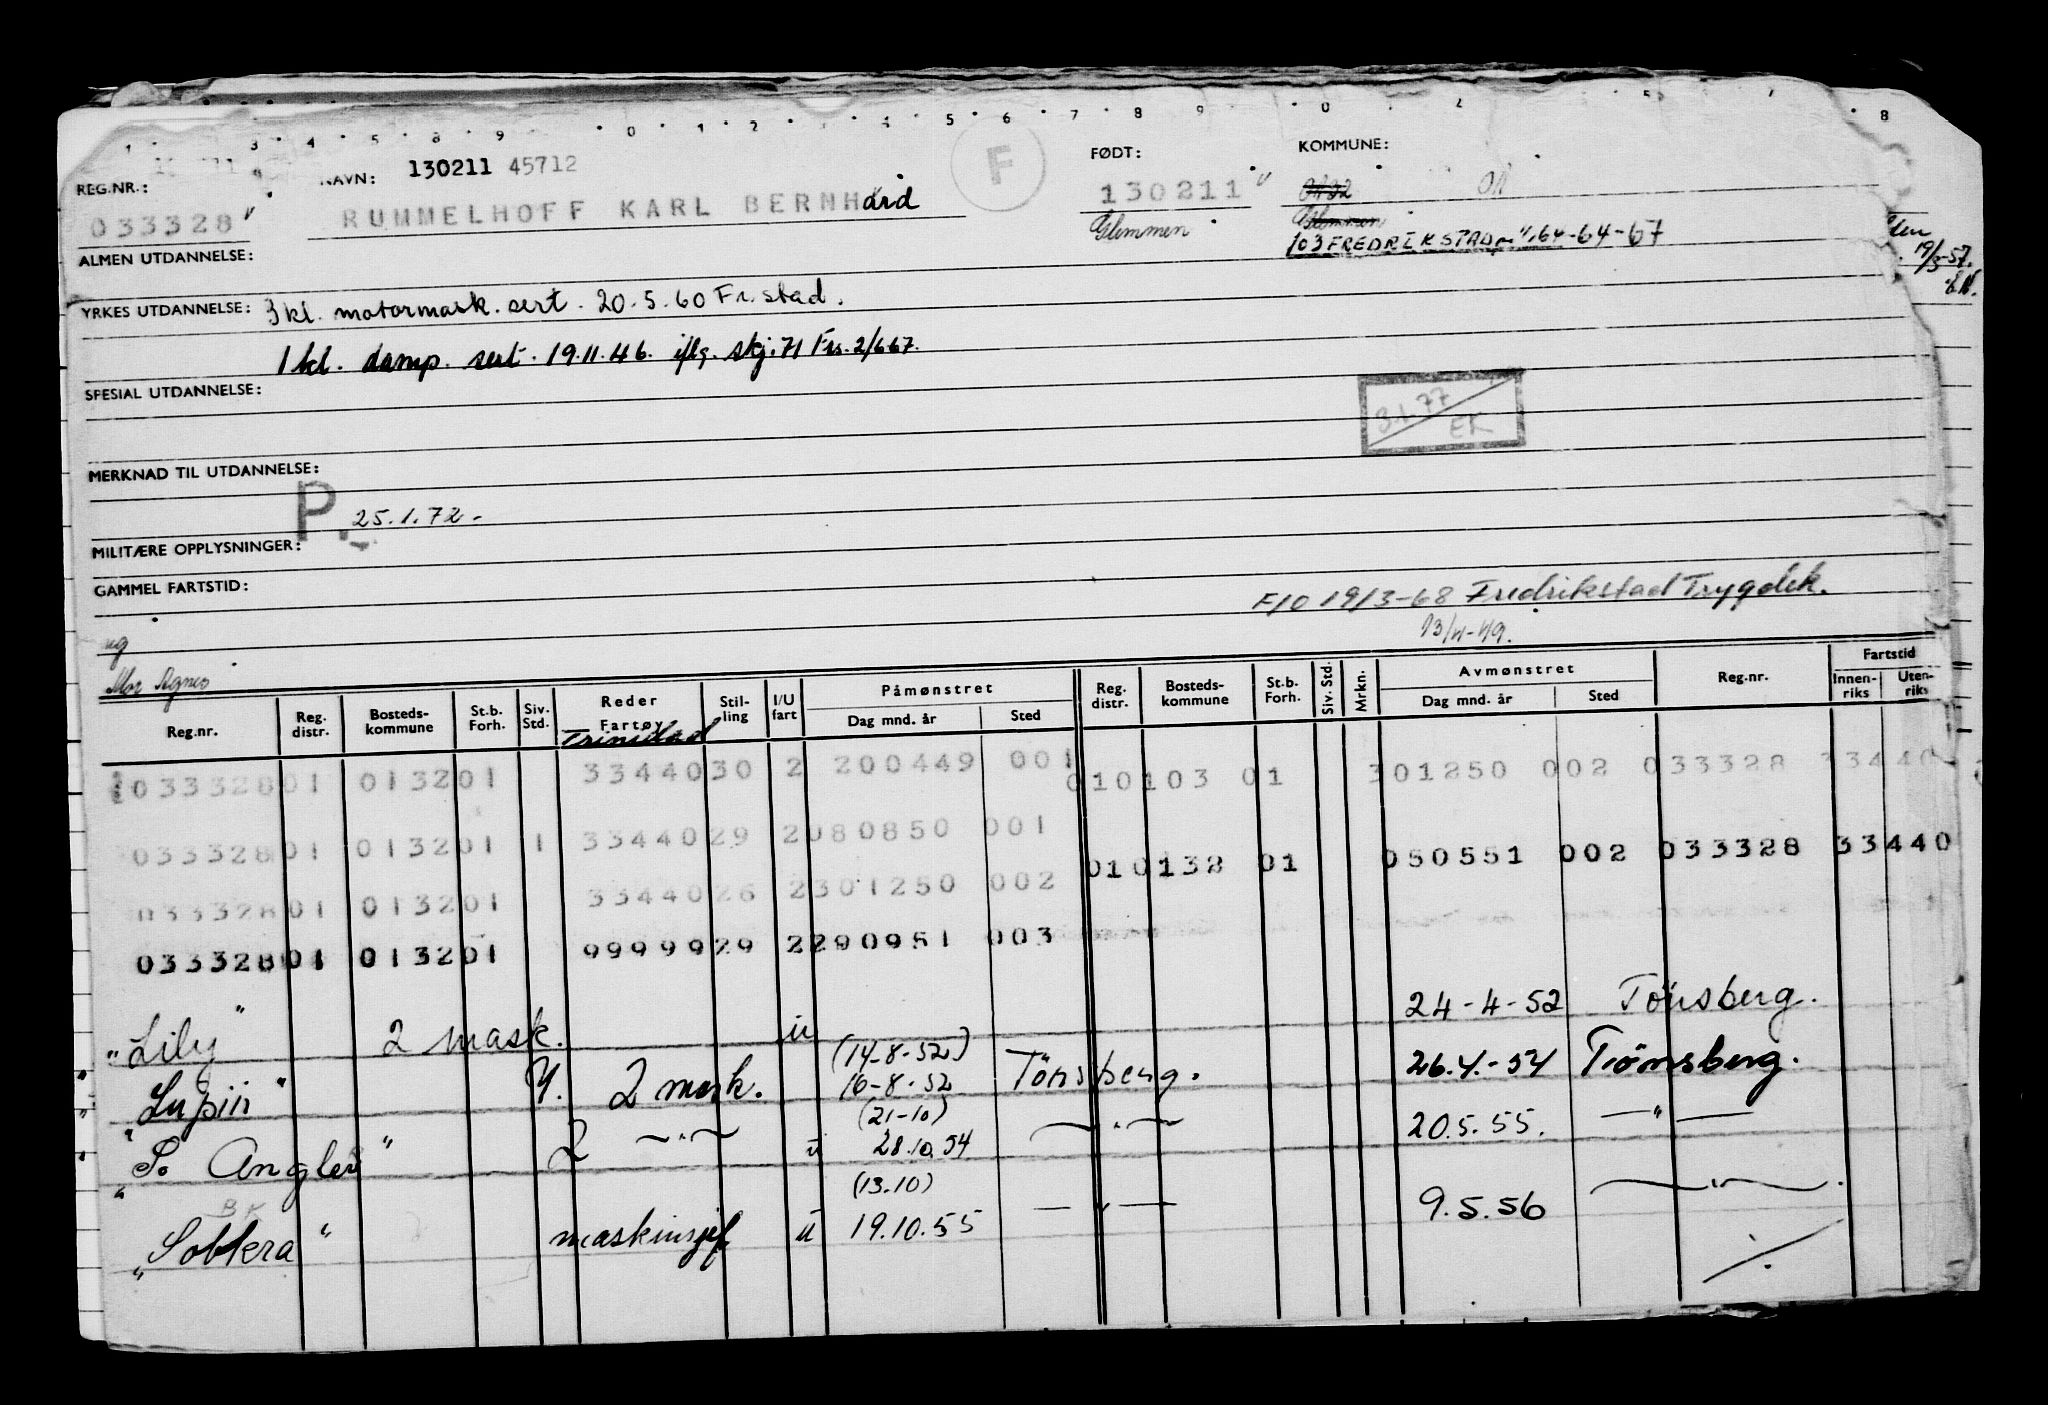 1 3 4 5 8 9 0 1 2 4 5 6 7 8 9 0 2 5 7 8
REG.NR.: NAVN: 130211 45712 F FØDT: KOMMUNE:
033328 RUMMELHOFF KARL BERNHard 130211
Glemmen Glemmen
103 FREDRIKSTAD 64-64-67
19/3-57.
ALMEN UTDANNELSE:
YRKES UTDANNELSE: 3 kl. motormask. sert. 20.5.60 Fr.stad.
1 kl. damp. sert. 19.11.46. iflg. skj. 71 Frs. 2/6 67.
SPESIAL UTDANNELSE:
3.1.77
EK
MERKNAD TIL UTDANNELSE:
P. 25.1.72.-
MILITÆRE OPPLYSNINGER:
GAMMEL FARTSTID:
F/O 19/3-68 Fredrikstad Trygdek.
ug
Mor Agnes
Reg.nr. Reg. distr. Bosteds-kommune St.b. Forh. Siv. Std. Reder Fartøy Stil-ling I/U fart Påmønstret Dag mnd. år Sted Reg. distr. Bosteds-kommune St.b. Forh. Siv. Std. Mrkn. Avmønstret Dag mnd. år Sted Reg.nr. Fartstid Innen-riks Uten-riks
Trinidad
033328 01 0132 01 33440 30 2 200449 001 01 0103 01 301250 002 033328 33440
033328 01 0132 01 1 33440 29 2 080850 001 01 0132 01 050551 002 033328 33440
033328 01 0132 01 33440 26 2 301250 002
033328 01 0132 01 99999 29 2 290951 003
"Lily" 2 mask. u 24-4-52 Tönsberg.
(14-8-52)
"Lupiii" Y. 2 mask. 16-8-52 Tönsberg. 26.4.-54 Tönsberg.
(21-10)
"S. Anglev" 2 —"— u 28.10.54 —"— 20.5.55. —"—
(13.10)
BK
"Solkera" maskinsjef u 19.10.55 —"— 9.5.56 —"—.